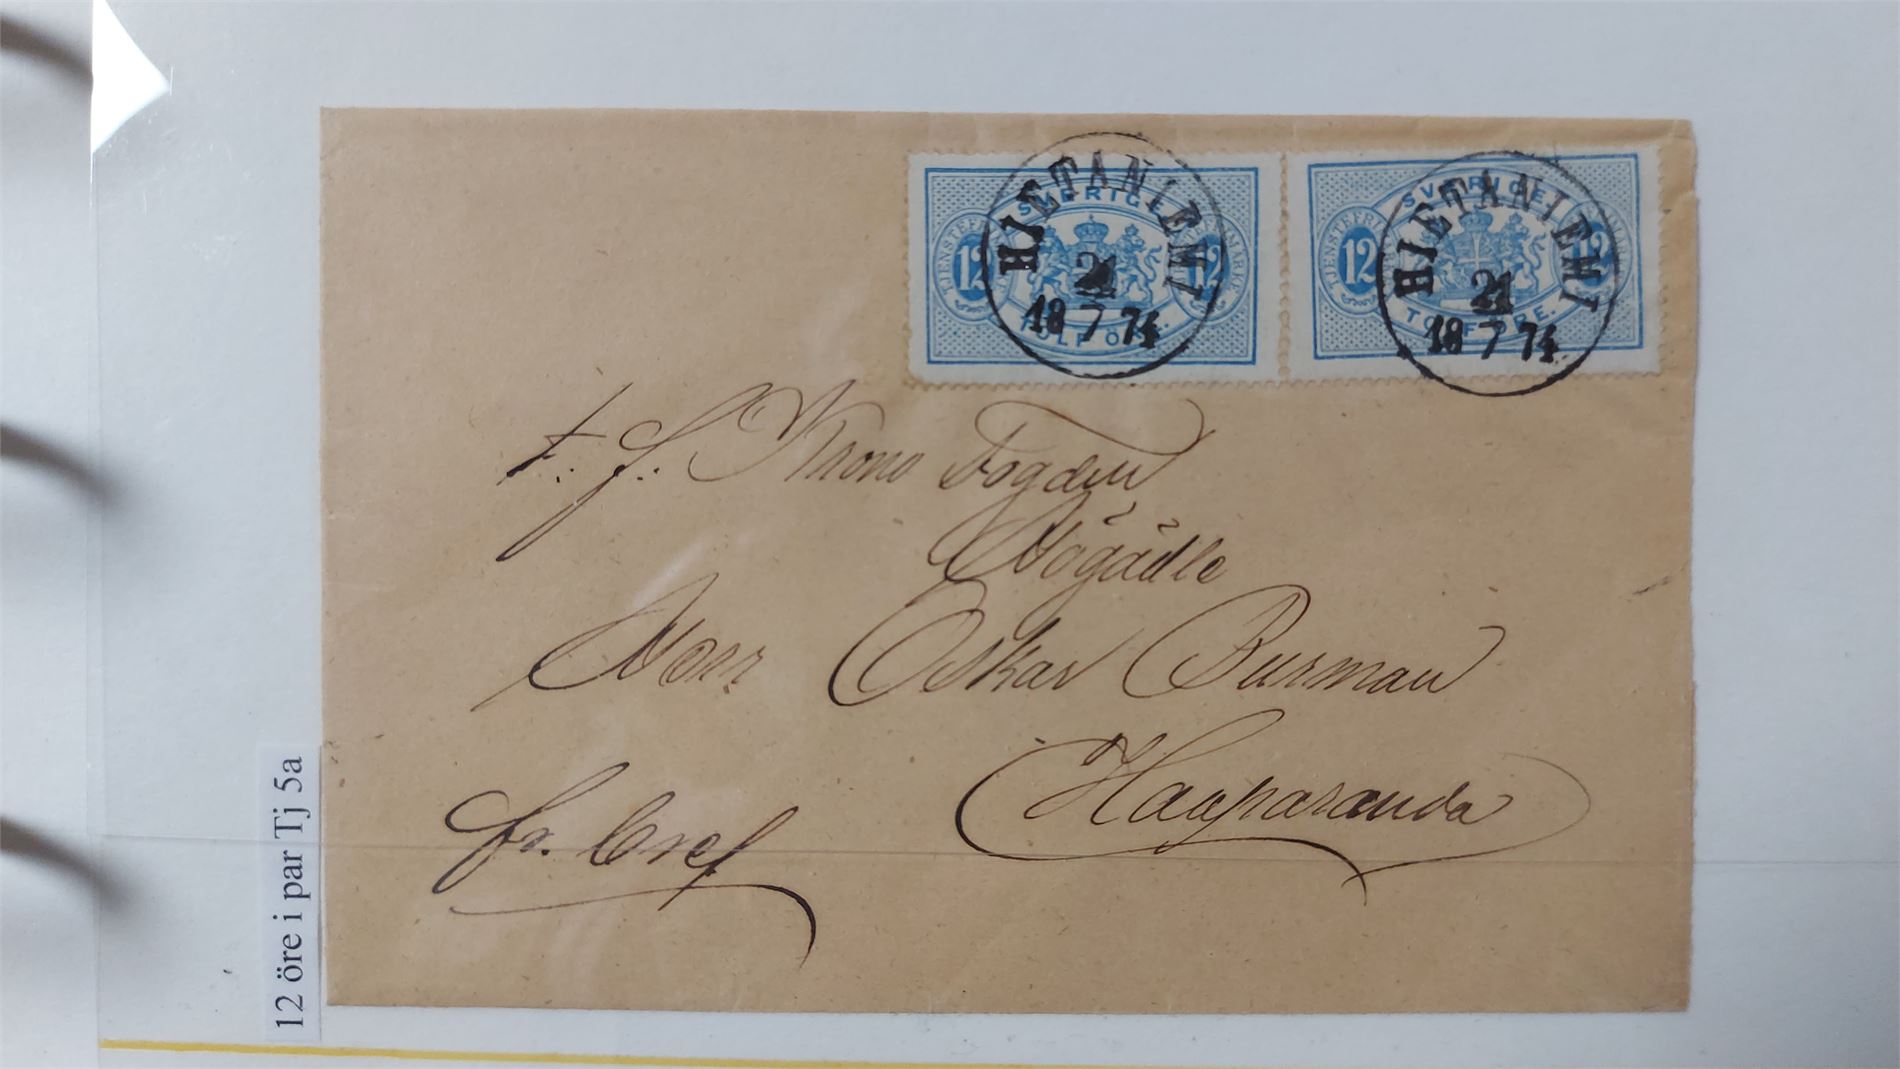 SVERIGE
TJENSTEFRIMÄRKE
12 12
TOLF ÖRE.
HJETANIEMI
21
18 7 74
SVERIGE
TJENSTEFRIMÄRKE
12 12
TOLF ÖRE.
HJETANIEMI
21
18 7 74
t. f. Krono Fogden
Högädle
Herr Oskar Burman
Haaparanda
fr. bref
12 öre i par Tj 5a